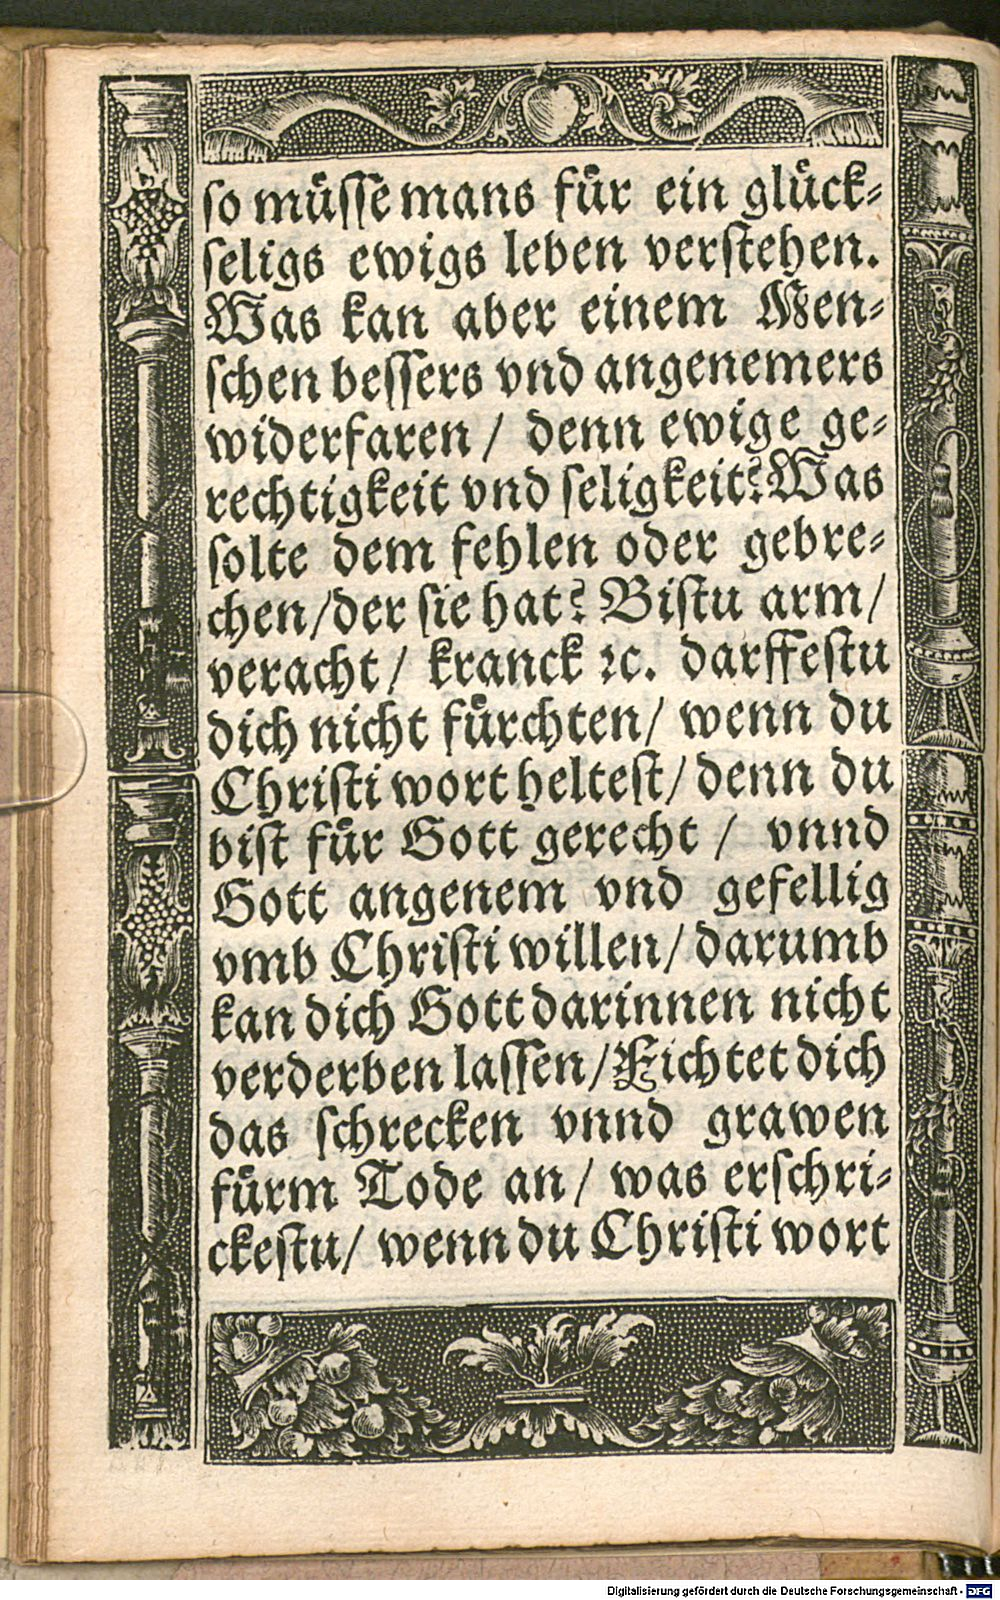 so müsse mans für ein glück⸗
seligs ewigs leben verstehen.
Was kan aber einem Men⸗
schen bessers vnd angenemers
widerfaren / denn ewige ge⸗
rechtigkeit vnd seligkeit? Was
solte dem fehlen oder gebre⸗
chen / der sie hat? Bistu arm /
veracht / kranck ꝛc. darffestu
dich nicht fürchten / wenn du
Christi wort heltest / denn du
bist für Gott gerecht / vnnd
Gott angenem vnd gefellig
vmb Christi willen / darumb
kan dich Gott darinnen nicht
verderben lassen / Fichtet dich
das schrecken vnnd grawen
fürm Tode an / was erschri⸗
ckestu / wenn du Christi wort
Digitalisierung gefördert durch die Deutsche Forschungsgemeinschaft - DFG